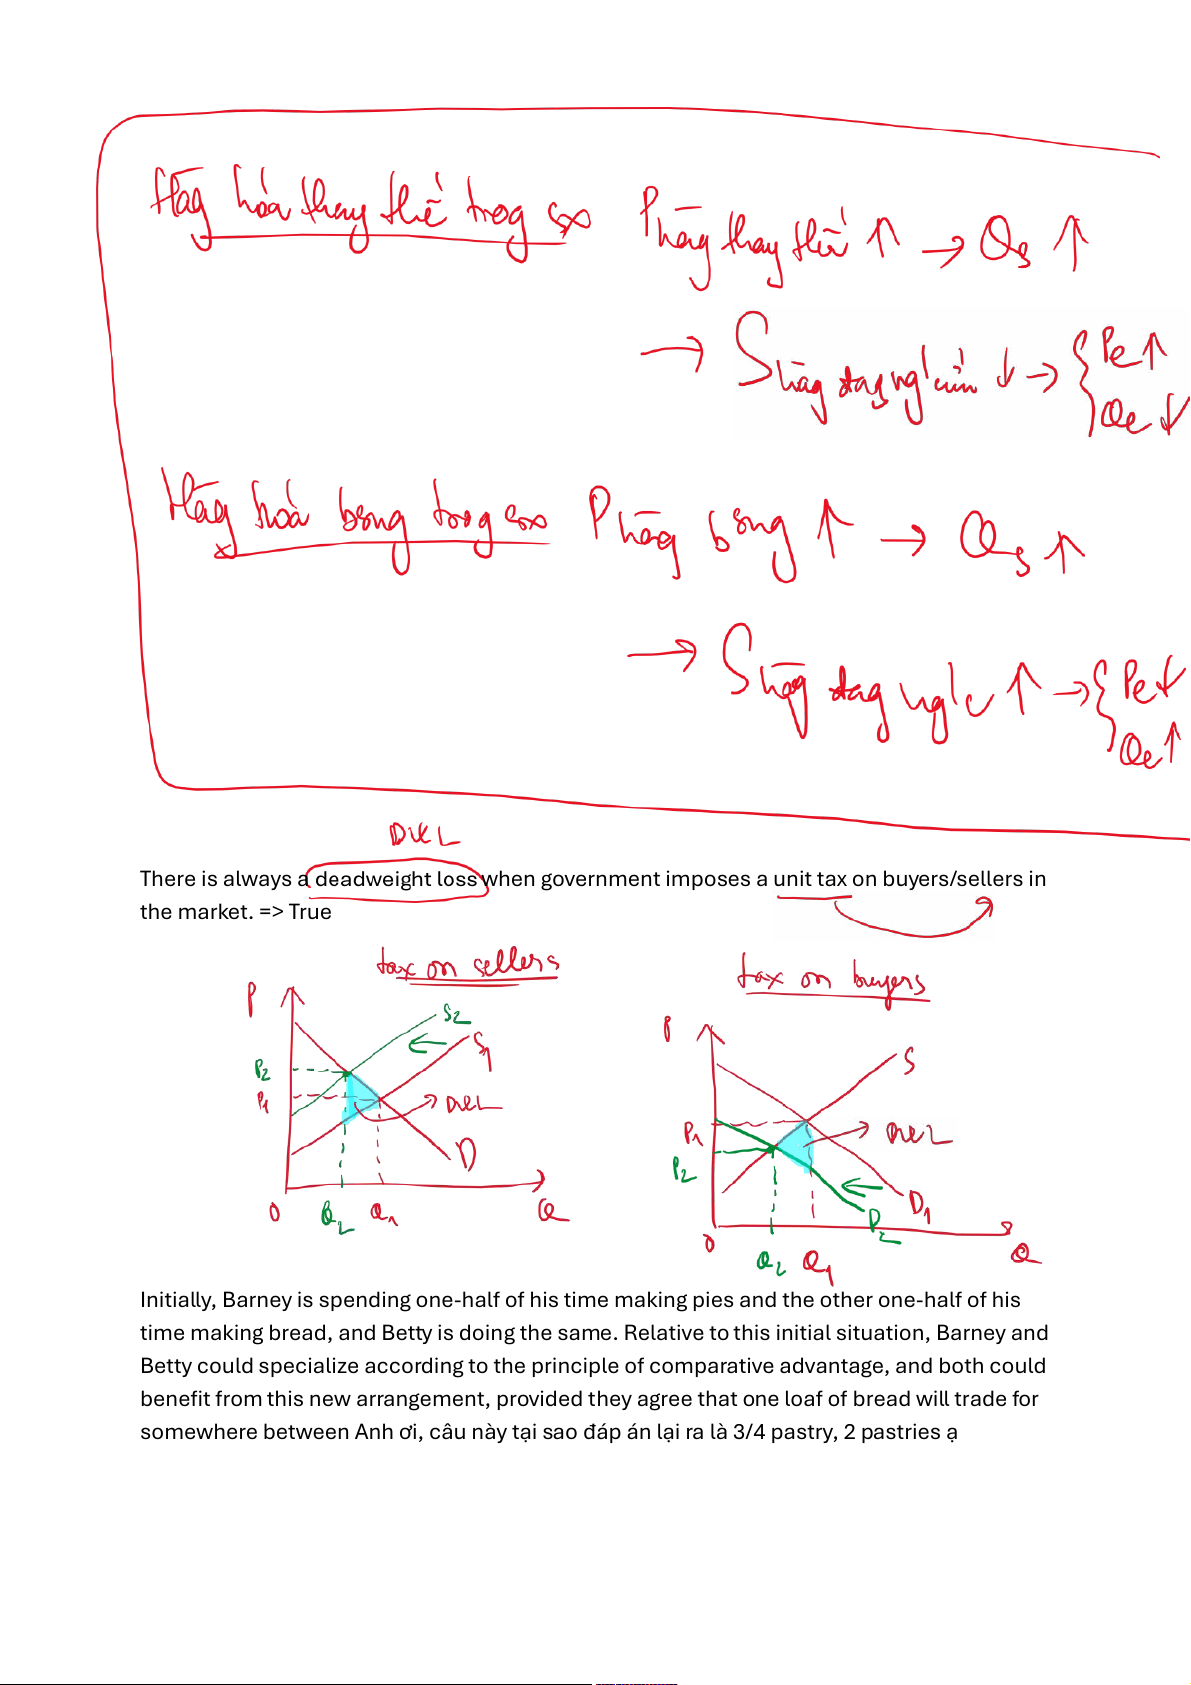 Hàg hóa thay thế trog sx P hàg thay thế ↑ → Qs ↑
→ S hàg đag ng/cứu ↓ → { Pe ↑
Qe ↓
Hàg hóa bsug trog sx P hàg bsug ↑ → Qs ↑
→ S hàg đag ng/c ↑ → { Pe ↓
Qe ↑
DWL
There is always a deadweight loss when government imposes a unit tax on buyers/sellers in
the market. => True
tax on sellers
P
S2
S1
P2
P1
DWL
D
0 Q2 Q1 Q
tax on buyers
P
S
P1
DWL
P2
D1
D2
0
Q2 Q1 Q
Initially, Barney is spending one-half of his time making pies and the other one-half of his
time making bread, and Betty is doing the same. Relative to this initial situation, Barney and
Betty could specialize according to the principle of comparative advantage, and both could
benefit from this new arrangement, provided they agree that one loaf of bread will trade for
somewhere between Anh ơi, câu này tại sao đáp án lại ra là 3/4 pastry, 2 pastries ạ